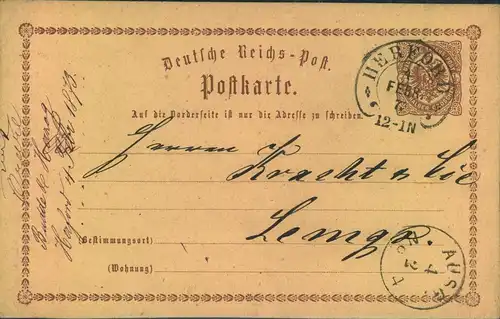 Deutsche Reichs-Post.
Postkarte.
HERFORD
FEBR
12-1N
Auf die Vorderseite ist nur die Adresse zu schreiben.
Herren
Kracht & Cie
Lemgo.
(Bestimmungsort)
(Wohnung)
AUSG
4
2
1873.